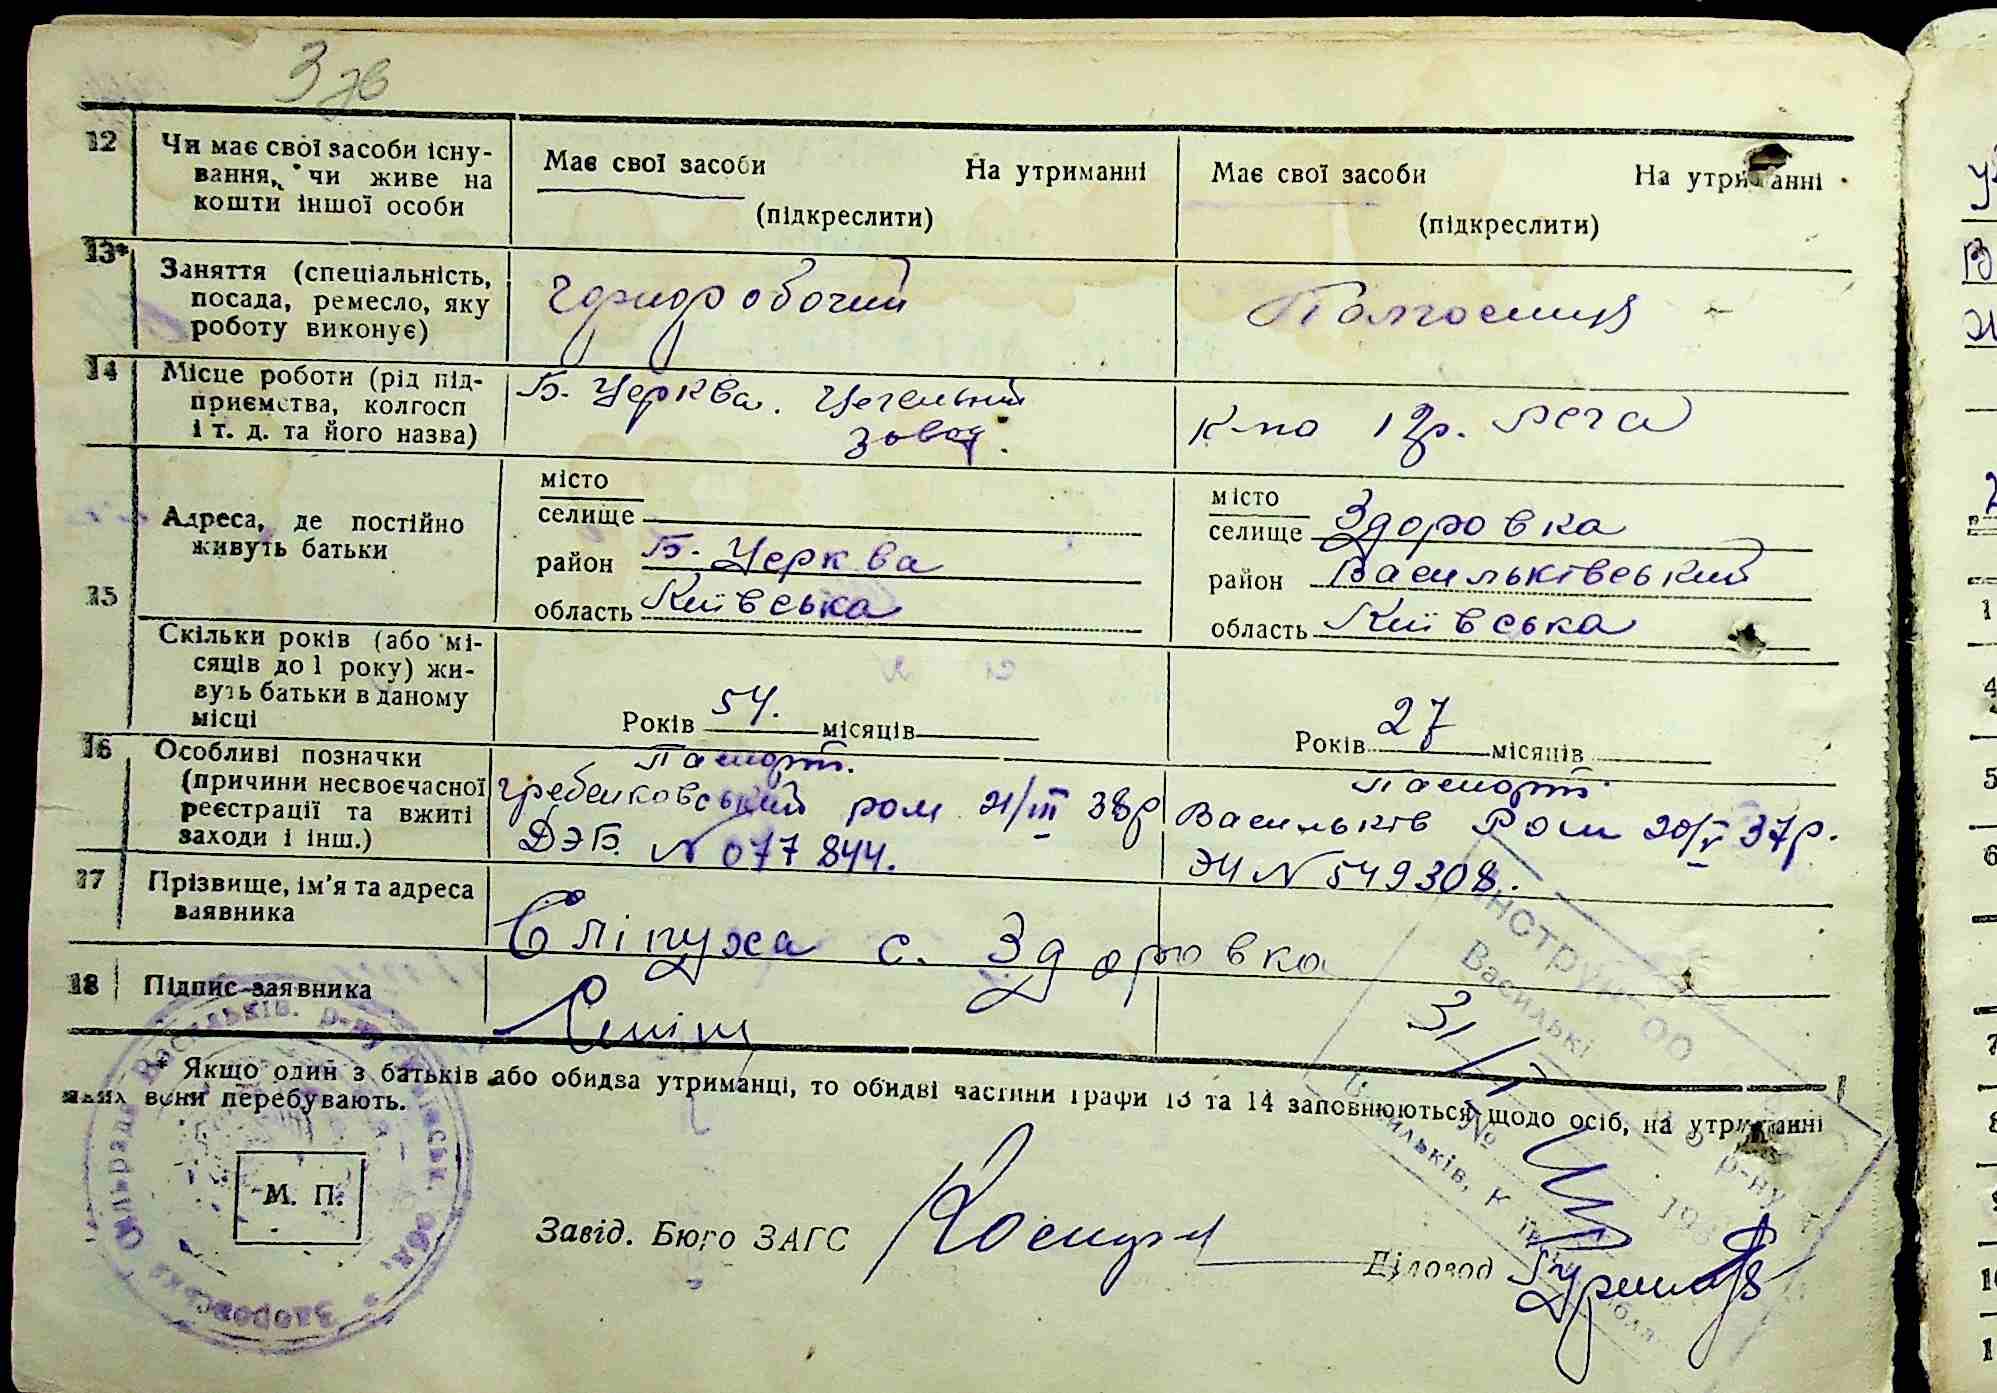 3 зв
12 Чи має свої засоби існу-
вання, чи живе на
кошти іншої особи
Має свої засоби На утриманні
(підкреслити)
Має свої засоби На утриманні
(підкреслити)
13* Заняття (спеціальність,
посада, ремесло, яку
роботу виконує)
Чорноробочий
Колгоспниця
14 Місце роботи (рід під-
приємства, колгосп
і т. д. та його назва)
Б. Церква. Цегельний
завод.
К-та
15 Адреса, де постійно
живуть батьки
місто
селище
район Б. Церква
область Київська
місто
селище Здоровка
район Васильківський
область Київська
Скільки років (або мі-
сяців до 1 року) жи-
вуть батьки в даному
місці
Років 54. місяців
Років 27 місяців
16 Особливі позначки
(причини несвоєчасної
реєстрації та вжиті
заходи і інш.)
Паспорт.
Гребенковський ром 21/III 38р
ДЭБ. № 077844.
Паспорт.
Васильків Ром 20/V 37р.
ЭЧ № 549308.
17 Прізвище, ім'я та адреса
заявника
Сліпуха с. Здоровка
18 Підпис заявника
* Якщо один з батьків або обидва утриманці, то обидві частини графи 13 та 14 заповнюються щодо осіб, на утриманні
яких вони перебувають.
М. П.
Завід. Бюро ЗАГС
Діловод